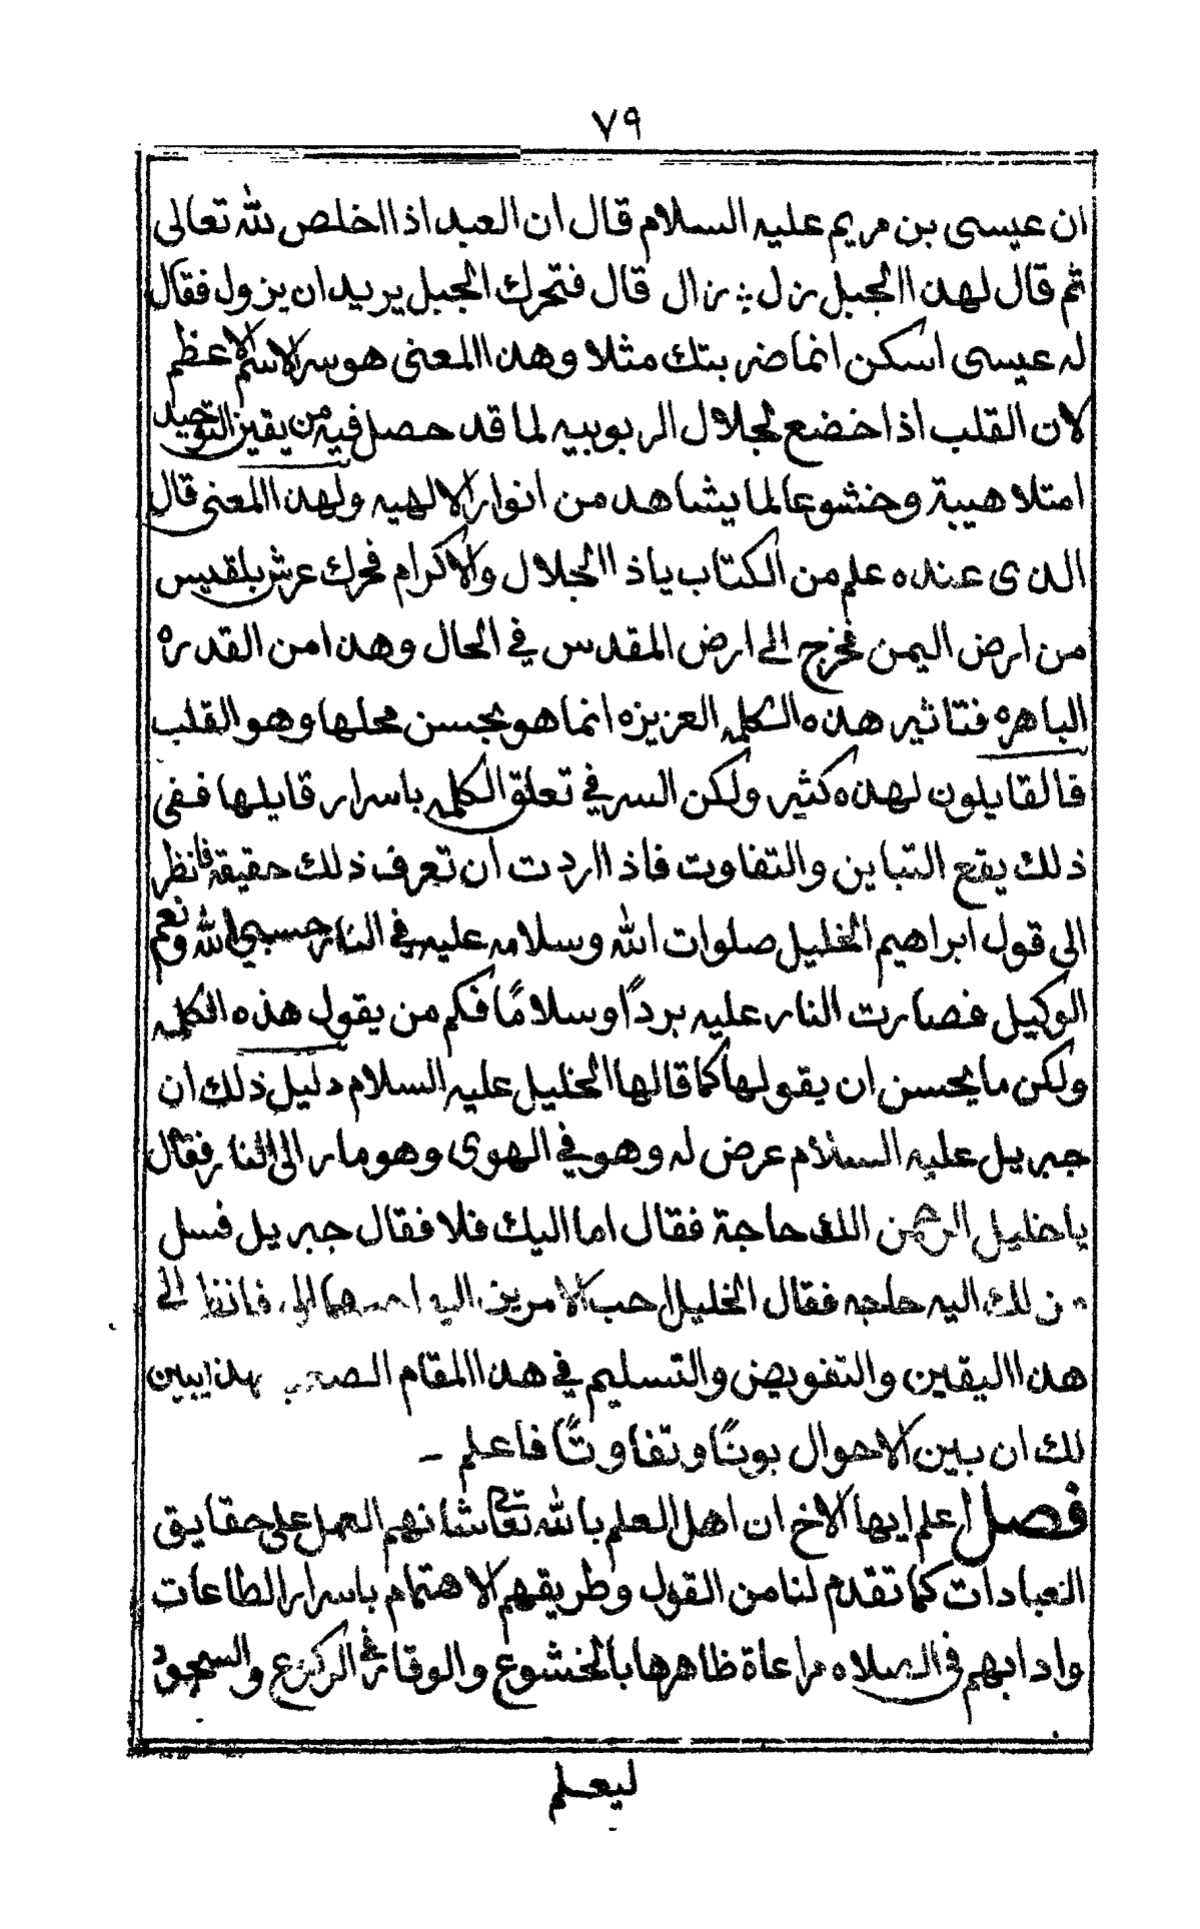 ٧٩
ان عيسى بن مريم عليه السلام قال ان العبد اذا اخلص لله تعالى
ثم قال لهذا الجبل زل : زال قال فتحرك الجبل يريد ان يزول فقال
له عيسى اسكن انما ضربتك مثلا وهذا المعنى هو سر الاسم الاعظم
لان القلب اذا خضع لجلال الربوبيه لما قد حصل فيه من يقين التوحيد
امتلا هيبة وخشوعا لما يشاهد من انوار الالهيه ولهذا المعنى قال
الذى عنده علم من الكتاب ياذا الجلال والاكرام فحرك عرش بلقيس
من ارض اليمن فخرج الى ارض المقدس في الحال وهذا من القدره
الباهره فتاثير هذه الكلمه العزيزه انما هو بحسن محلها وهو القلب
فالقايلون لهذه كثير ولكن السر في تعلق الكلمه باسرار قايلها ففى
ذلك يقع التباين والتفاوت فاذا اردت ان تعرف ذلك حقيقة فانظر
الى قول ابراهيم الخليل صلوات الله وسلامه عليه في النار حسبي الله ونعم
الوكيل فصارت النار عليه بردًا وسلامًا فكم من يقول هذه الكلمه
ولكن ما يحسن ان يقولها كما قالها الخليل عليه السلام دليل ذلك ان
جبريل عليه السلام عرض له وهو في الهوى وهو مار الى النار فقال
ياخليل الرحمن الك حاجة فقال اما اليك فلا فقال جبريل فسل
من لك اليه حاجه فقال الخليل احب الامرين اليه احبهما الى فانظر الى
هذا اليقين والتفويض والتسليم في هذا المقام بهذا يبين
لك ان بين الاحوال بونًا وتفاوتًا فاعلم -
فصل اعلم ايها الاخ ان اهل العلم بالله تعالى شانهم العمل على حقايق
العبادات كما تقدم لنا من القول وطريقهم الاهتمام باسرار الطاعات
وادابهم في الصلاه مراعاة ظاهرها بالخشوع والوقار في الركوع والسجود
ليعلم